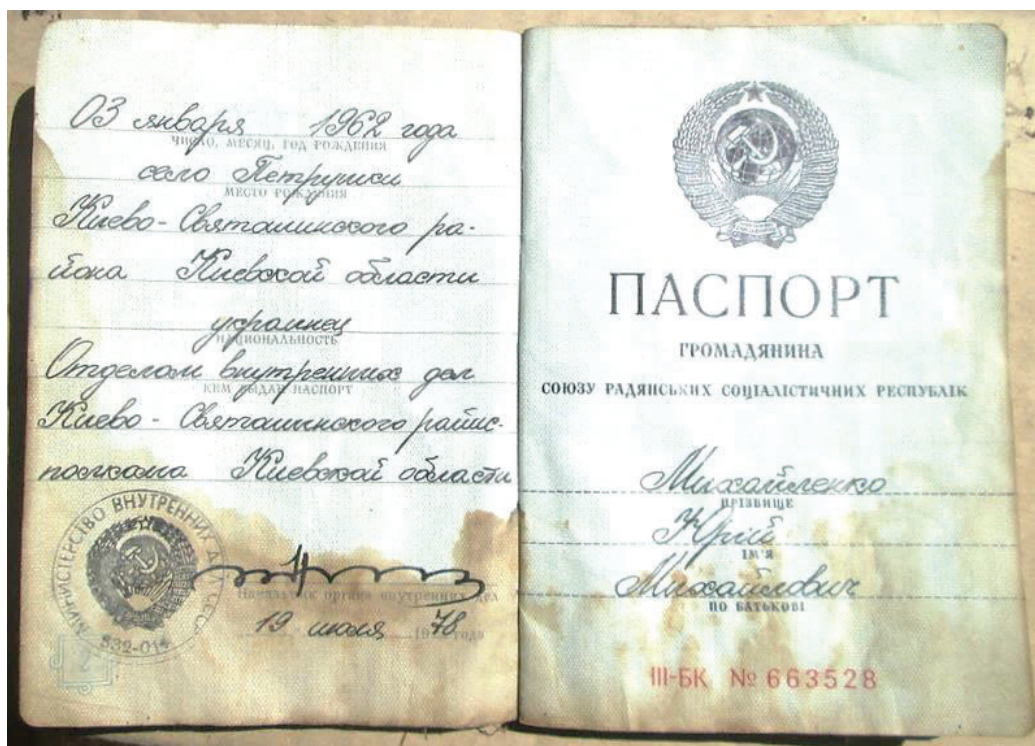 03 января 1962 года
ЧИСЛО, МЕСЯЦ, ГОД РОЖДЕНИЯ
село Петрушки
МЕСТО РОЖДЕНИЯ
Киево-Святошинского ра-
йона Киевской области
украинец
НАЦИОНАЛЬНОСТЬ
Отделом внутренних дел
КЕМ ВЫДАН ПАСПОРТ
Киево-Святошинского райис-
полкома Киевской области
МИНИСТЕРСТВО ВНУТРЕННИХ ДЕЛ СССР
Начальник органа внутренних дел
19 июля 1978 года
2
ПАСПОРТ
ГРОМАДЯНИНА
СОЮЗУ РАДЯНСЬКИХ СОЦІАЛІСТИЧНИХ РЕСПУБЛІК
Михайленко
ПРІЗВИЩЕ
Юрій
ІМ'Я
Михайлович
ПО БАТЬКОВІ
III-БК № 663528